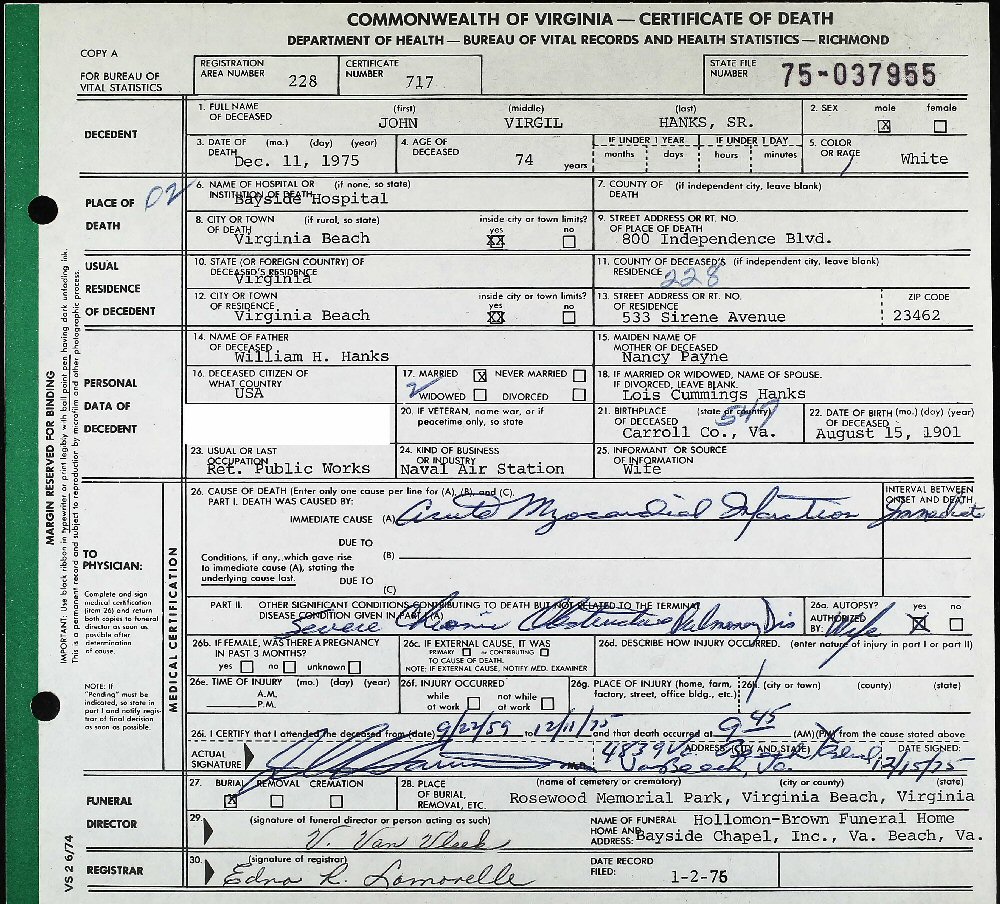 COMMONWEALTH OF VIRGINIA — CERTIFICATE OF DEATH
DEPARTMENT OF HEALTH — BUREAU OF VITAL RECORDS AND HEALTH STATISTICS — RICHMOND
COPY A
FOR BUREAU OF VITAL STATISTICS
REGISTRATION AREA NUMBER 228
CERTIFICATE NUMBER 717
STATE FILE NUMBER 75-037955
DECEDENT
1. FULL NAME OF DECEASED (first) (middle) (last)
JOHN VIRGIL HANKS, SR.
2. SEX male female
X
3. DATE OF DEATH (mo.) (day) (year)
Dec. 11, 1975
4. AGE OF DECEASED 74 years
IF UNDER 1 YEAR months days
IF UNDER 1 DAY hours minutes
5. COLOR OR RACE White
PLACE OF DEATH
02
6. NAME OF HOSPITAL OR INSTITUTION OF DEATH (if none, so state)
Bayside Hospital
7. COUNTY OF DEATH (if independent city, leave blank)
8. CITY OR TOWN OF DEATH (if rural, so state)
Virginia Beach
inside city or town limits? yes no
XX
9. STREET ADDRESS OR RT. NO. OF PLACE OF DEATH
800 Independence Blvd.
USUAL RESIDENCE OF DECEDENT
10. STATE (OR FOREIGN COUNTRY) OF DECEASED'S RESIDENCE
Virginia
11. COUNTY OF DECEASED'S RESIDENCE (if independent city, leave blank)
228
12. CITY OR TOWN OF RESIDENCE
Virginia Beach
inside city or town limits? yes no
XX
13. STREET ADDRESS OR RT. NO. OF RESIDENCE
533 Sirene Avenue
ZIP CODE
23462
PERSONAL DATA OF DECEDENT
14. NAME OF FATHER OF DECEASED
William H. Hanks
15. MAIDEN NAME OF MOTHER OF DECEASED
Nancy Payne
16. DECEASED CITIZEN OF WHAT COUNTRY
USA
17. MARRIED X NEVER MARRIED
2 WIDOWED DIVORCED
18. IF MARRIED OR WIDOWED, NAME OF SPOUSE. IF DIVORCED, LEAVE BLANK.
Lois Cummings Hanks
20. IF VETERAN, name war, or if peacetime only, so state
21. BIRTHPLACE OF DECEASED (state or country)
547
Carroll Co., Va.
22. DATE OF BIRTH (mo.) (day) (year) OF DECEASED
August 15, 1901
23. USUAL OR LAST OCCUPATION
Ret. Public Works
24. KIND OF BUSINESS OR INDUSTRY
Naval Air Station
25. INFORMANT OR SOURCE OF INFORMATION
Wife
MARGIN RESERVED FOR BINDING
IMPORTANT: Use black ribbon in typewriter or print legibly with ball point pen having dark unfading ink.
This is a permanent record and subject to reproduction by microfilm and other photographic process.
VS 2 6/74
TO PHYSICIAN:
Complete and sign medical certification (item 26) and return both copies to funeral director as soon as possible after determination of cause.
NOTE: If "Pending" must be indicated, so state in part I and notify registrar of final decision as soon as possible.
MEDICAL CERTIFICATION
26. CAUSE OF DEATH (Enter only one cause per line for (A), (B), and (C).
PART I. DEATH WAS CAUSED BY:
INTERVAL BETWEEN ONSET AND DEATH
IMMEDIATE CAUSE (A) Acute Myocardial Infarction Immediate
DUE TO
Conditions, if any, which gave rise to immediate cause (A), stating the underlying cause last.
(B)
DUE TO
(C)
PART II. OTHER SIGNIFICANT CONDITIONS CONTRIBUTING TO DEATH BUT NOT RELATED TO THE TERMINAL DISEASE CONDITION GIVEN IN PART I (A)
Severe Chronic Obstructive Pulmonary Dis
26a. AUTOPSY? yes no
AUTHORIZED BY: Wife X
26b. IF FEMALE, WAS THERE A PREGNANCY IN PAST 3 MONTHS?
yes no unknown
26c. IF EXTERNAL CAUSE, IT WAS
PRIMARY or CONTRIBUTING
TO CAUSE OF DEATH.
NOTE: IF EXTERNAL CAUSE, NOTIFY MED. EXAMINER
26d. DESCRIBE HOW INJURY OCCURRED. (enter nature of injury in part I or part II)
26e. TIME OF INJURY (mo.) (day) (year)
A.M.
P.M.
26f. INJURY OCCURRED
while at work not while at work
26g. PLACE OF INJURY (home, farm, factory, street, office bldg., etc.)
26h. (city or town) (county) (state)
26i. I CERTIFY that I attended the deceased from (date) 9/22/59 to 12/11/75 and that death occurred at 9 45 (AM) (PM) from the cause stated above
ACTUAL SIGNATURE
M.D.
ADDRESS (CITY AND STATE)
4839
Va Beach, Va.
DATE SIGNED:
12/15/75
FUNERAL DIRECTOR
27. BURIAL REMOVAL CREMATION
X
28. PLACE OF BURIAL, REMOVAL, ETC. (name of cemetery or crematory) (city or county) (state)
Rosewood Memorial Park, Virginia Beach, Virginia
29. (signature of funeral director or person acting as such)
V. Van Vleek
NAME OF FUNERAL HOME AND ADDRESS:
Hollomon-Brown Funeral Home
Bayside Chapel, Inc., Va. Beach, Va.
REGISTRAR
30. (signature of registrar)
Edna R. Lamorelle
DATE RECORD FILED:
1-2-76